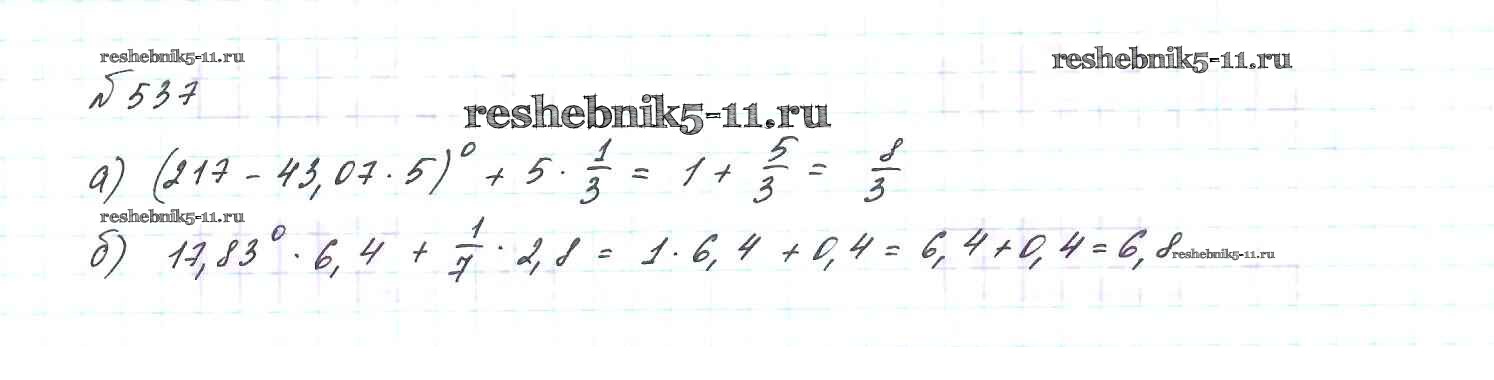 reshebnik5-11.ru
reshebnik5-11.ru
№ 537
reshebnik5-11.ru
а) (217 - 43,07 · 5)⁰ + 5 · 1/3 = 1 + 5/3 = 8/3
reshebnik5-11.ru
б) 17,83⁰ · 6,4 + 1/7 · 2,8 = 1 · 6,4 + 0,4 = 6,4 + 0,4 = 6,8
reshebnik5-11.ru